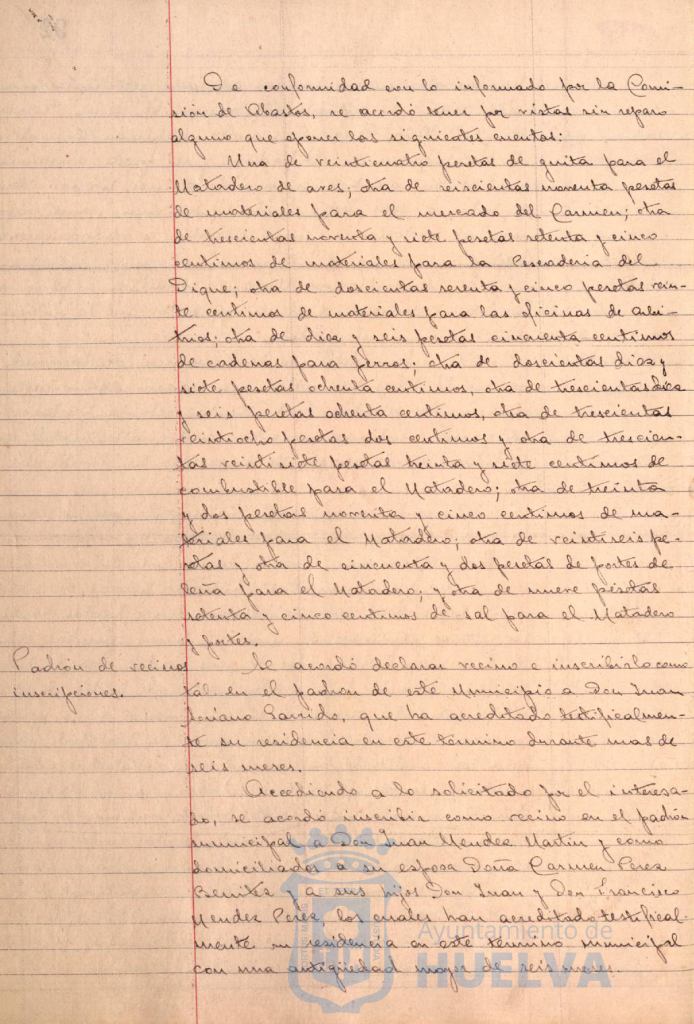 De conformidad con lo informado por la Comi-
sión de Abastos, se acordó tener por vistas sin reparo
alguno que oponer las siguientes cuentas:
Una de veinticuatro pesetas de guita para el
Matadero de aves; otra de seiscientas noventa pesetas
de materiales para el mercado del Carmen; otra
de trescientas noventa y siete pesetas setenta y cinco
centimos de materiales para la Pescaderia del
Dique; otra de doscientas sesenta y cinco pesetas vein-
te centimos de materiales para las oficinas de arbi-
trios; otra de diez y seis pesetas cincuenta centimos
de cadenas para perros; otra de doscientas diez y
siete pesetas ochenta centimos, otra de trescientas diez
y seis pesetas ochenta centimos, otra de trescientas
veintiocho pesetas dos centimos y otra de trescien-
tas veintisiete pesetas treinta y siete centimos de
combustible para el Matadero; otra de treinta
y dos pesetas noventa y cinco centimos de ma-
teriales para el Matadero; otra de veintiseis pe-
setas y otra de cincuenta y dos pesetas de portes de
leña para el Matadero; y otra de nueve pesetas
setenta y cinco centimos de sal para el Matadero
y portes.
Padrón de vecinos
inscripciones.
Se acordó declarar vecino e inscribirlo como
tal en el padron de este Municipio a Don Juan
Soriano Garrido, que ha acreditado testificalmen-
te su residencia en este termino durante mas de
seis meses.
Accediendo a lo solicitado por el interesa-
do, se acordó inscribir como vecino en el padrón
municipal a Don Juan Mendez Martin y como
domiciliados a su esposa Doña Carmen Perez
Benitez y a sus hijos Don Juan y Don Francisco
Mendez Perez, los cuales han acreditado testifical-
mente su residencia en este termino municipal
con una antigüedad mayor de seis meses.
Ayuntamiento de
HUELVA